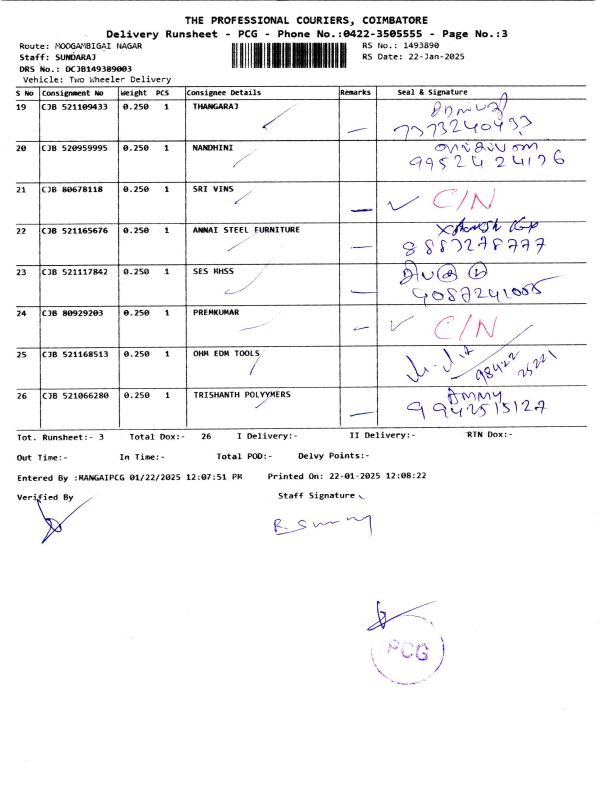 THE PROFESSIONAL COURIERS, COIMBATORE
Delivery Runsheet - PCG - Phone No.:0422-3505555 - Page No.:3
Route: MOOGAMBIGAI NAGAR RS No.: 1493890
Staff: SUNDARAJ RS Date: 22-Jan-2025
DRS No.: DCJB149389003
Vehicle: Two Wheeler Delivery
S No Consignment No Weight PCS Consignee Details Remarks Seal & Signature
19 CJB 521109433 0.250 1 THANGARAJ
7373240433
20 CJB 520959995 0.250 1 NANDHINI
9952424176
21 CJB 80678118 0.250 1 SRI VINS C/N
22 CJB 521165676 0.250 1 ANNAI STEEL FURNITURE
8883278777
23 CJB 521117842 0.250 1 SES MHSS
9087241005
24 CJB 80929203 0.250 1 PREMKUMAR C/N
25 CJB 521168513 0.250 1 OHM EDM TOOLS
98422
25221
26 CJB 521066280 0.250 1 TRISHANTH POLYYMERS AMMU
9942515127
Tot. Runsheet:- 3 Total Dox:- 26 I Delivery:- II Delivery:- RTN Dox:-
Out Time:- In Time:- Total POD:- Delvy Points:-
Entered By :MANGAIPCG 01/22/2025 12:07:51 PM Printed On: 22-01-2025 12:08:22
Verified By Staff Signature
PCG